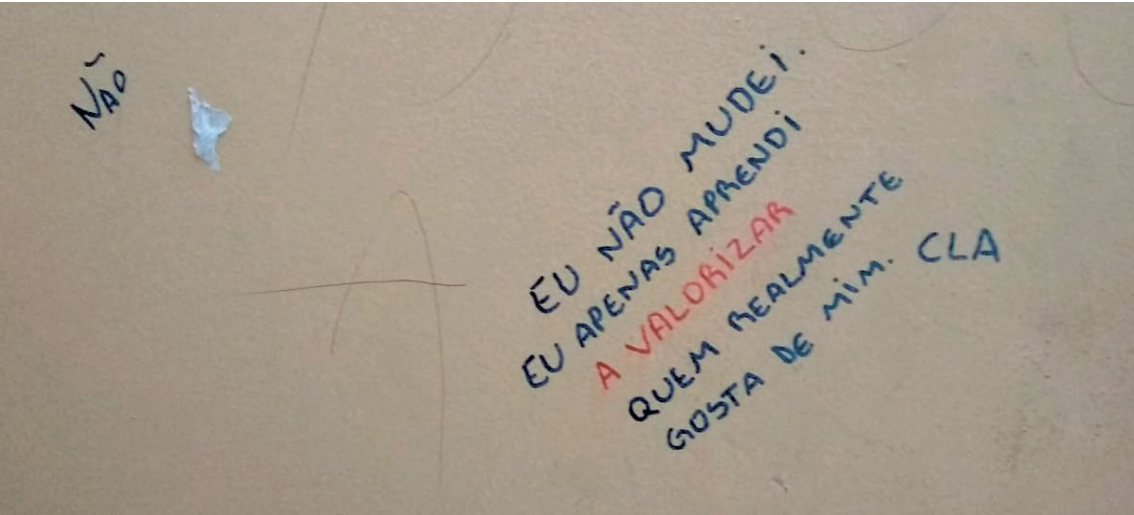 NÃO
EU NÃO MUDEI.
EU APENAS APRENDI
A VALORIZAR
QUEM REALMENTE
GOSTA DE MIM. CLA